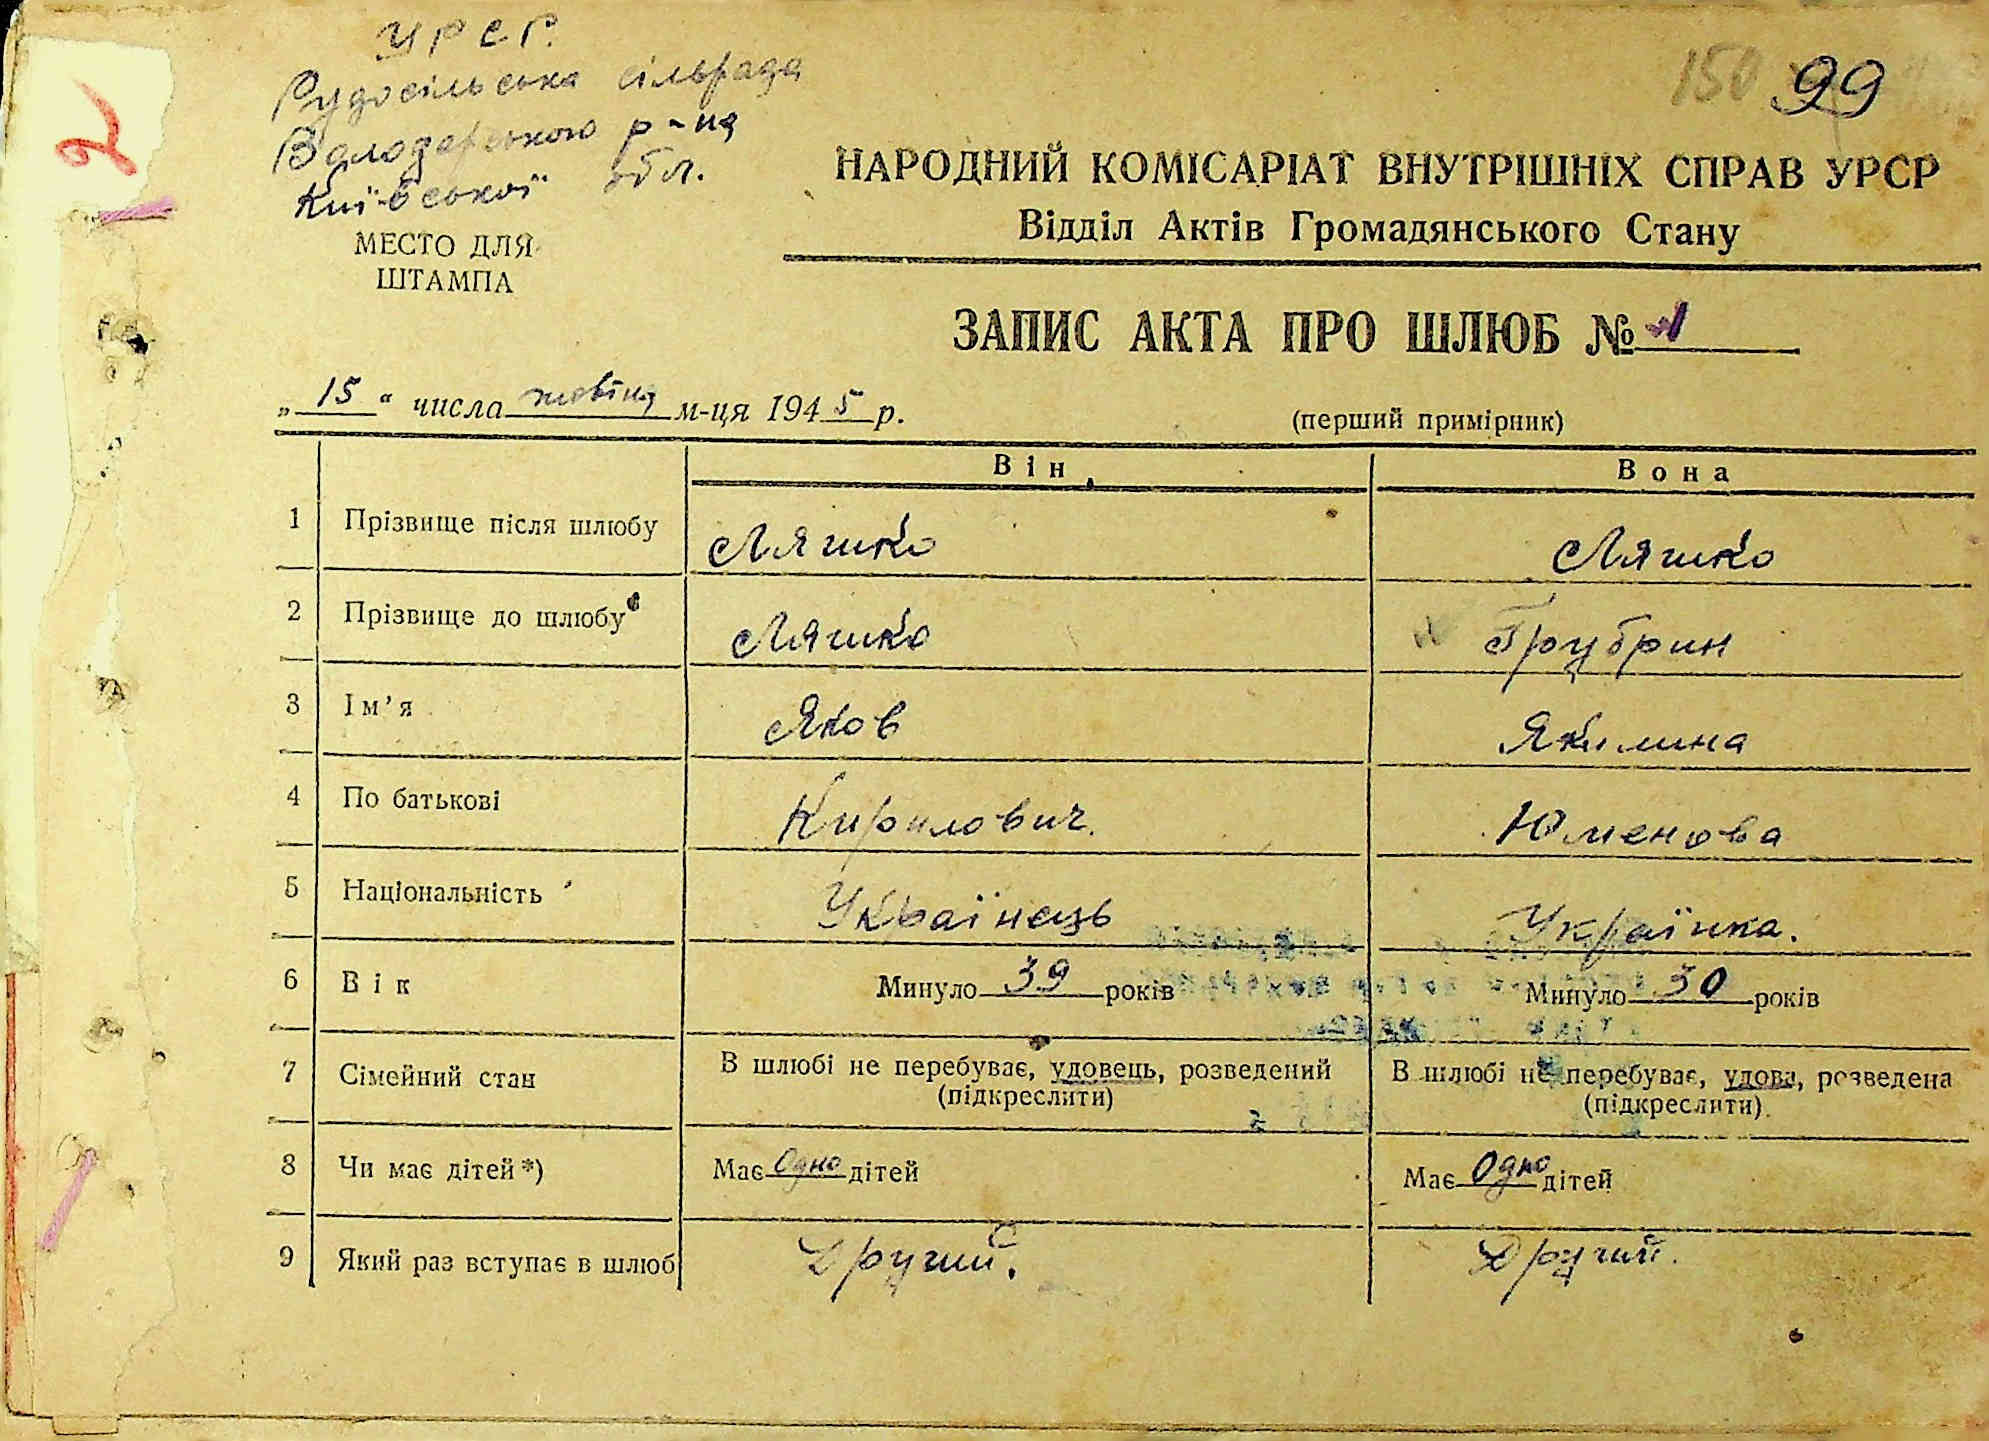 УРСР.
Рудосільська сільрада
Володарського р-на
Київської обл.
МЕСТО ДЛЯ
ШТАМПА
2
150 99
НАРОДНИЙ КОМІСАРІАТ ВНУТРІШНІХ СПРАВ УРСР
Відділ Актів Громадянського Стану
ЗАПИС АКТА ПРО ШЛЮБ № 1
„15“ числа жовтня м-ця 1945 р.
(перший примірник)
Він Вона
1 Прізвище після шлюбу Ляшко Ляшко
2 Прізвище до шлюбу Ляшко Грубрин
3 Ім’я Яков Якилина
4 По батькові Кирилович. Юменова
5 Національність Українець Українка.
6 Вік Минуло 39 років Минуло 30 років
7 Сімейний стан В шлюбі не перебуває, удовець, розведений В шлюбі не перебуває, удова, розведена
(підкреслити) (підкреслити)
8 Чи має дітей*) Має Одно дітей Має Одно дітей
9 Який раз вступає в шлюб Другий. Другий.